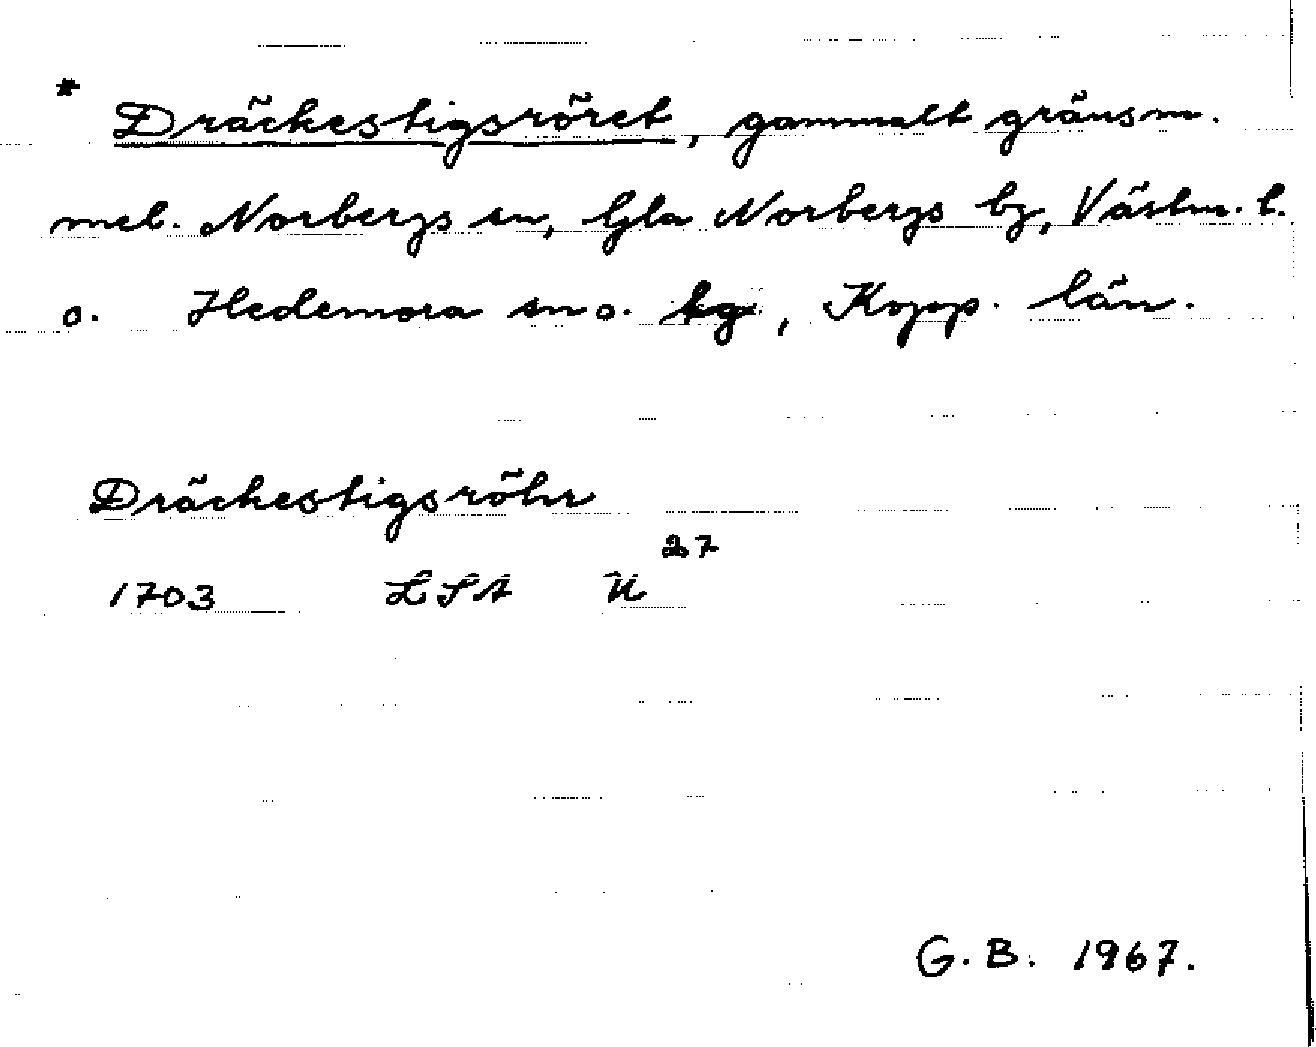 * Dräckestigsröret, gammalt gränsm.
mel. Norbergs sn, Gla Norbergs bg, Västm. l.
o. Hedemora sn o. bg, Kopp. län.
Dräckestigsröhr
1703 LSA U 27
G. B. 1967.